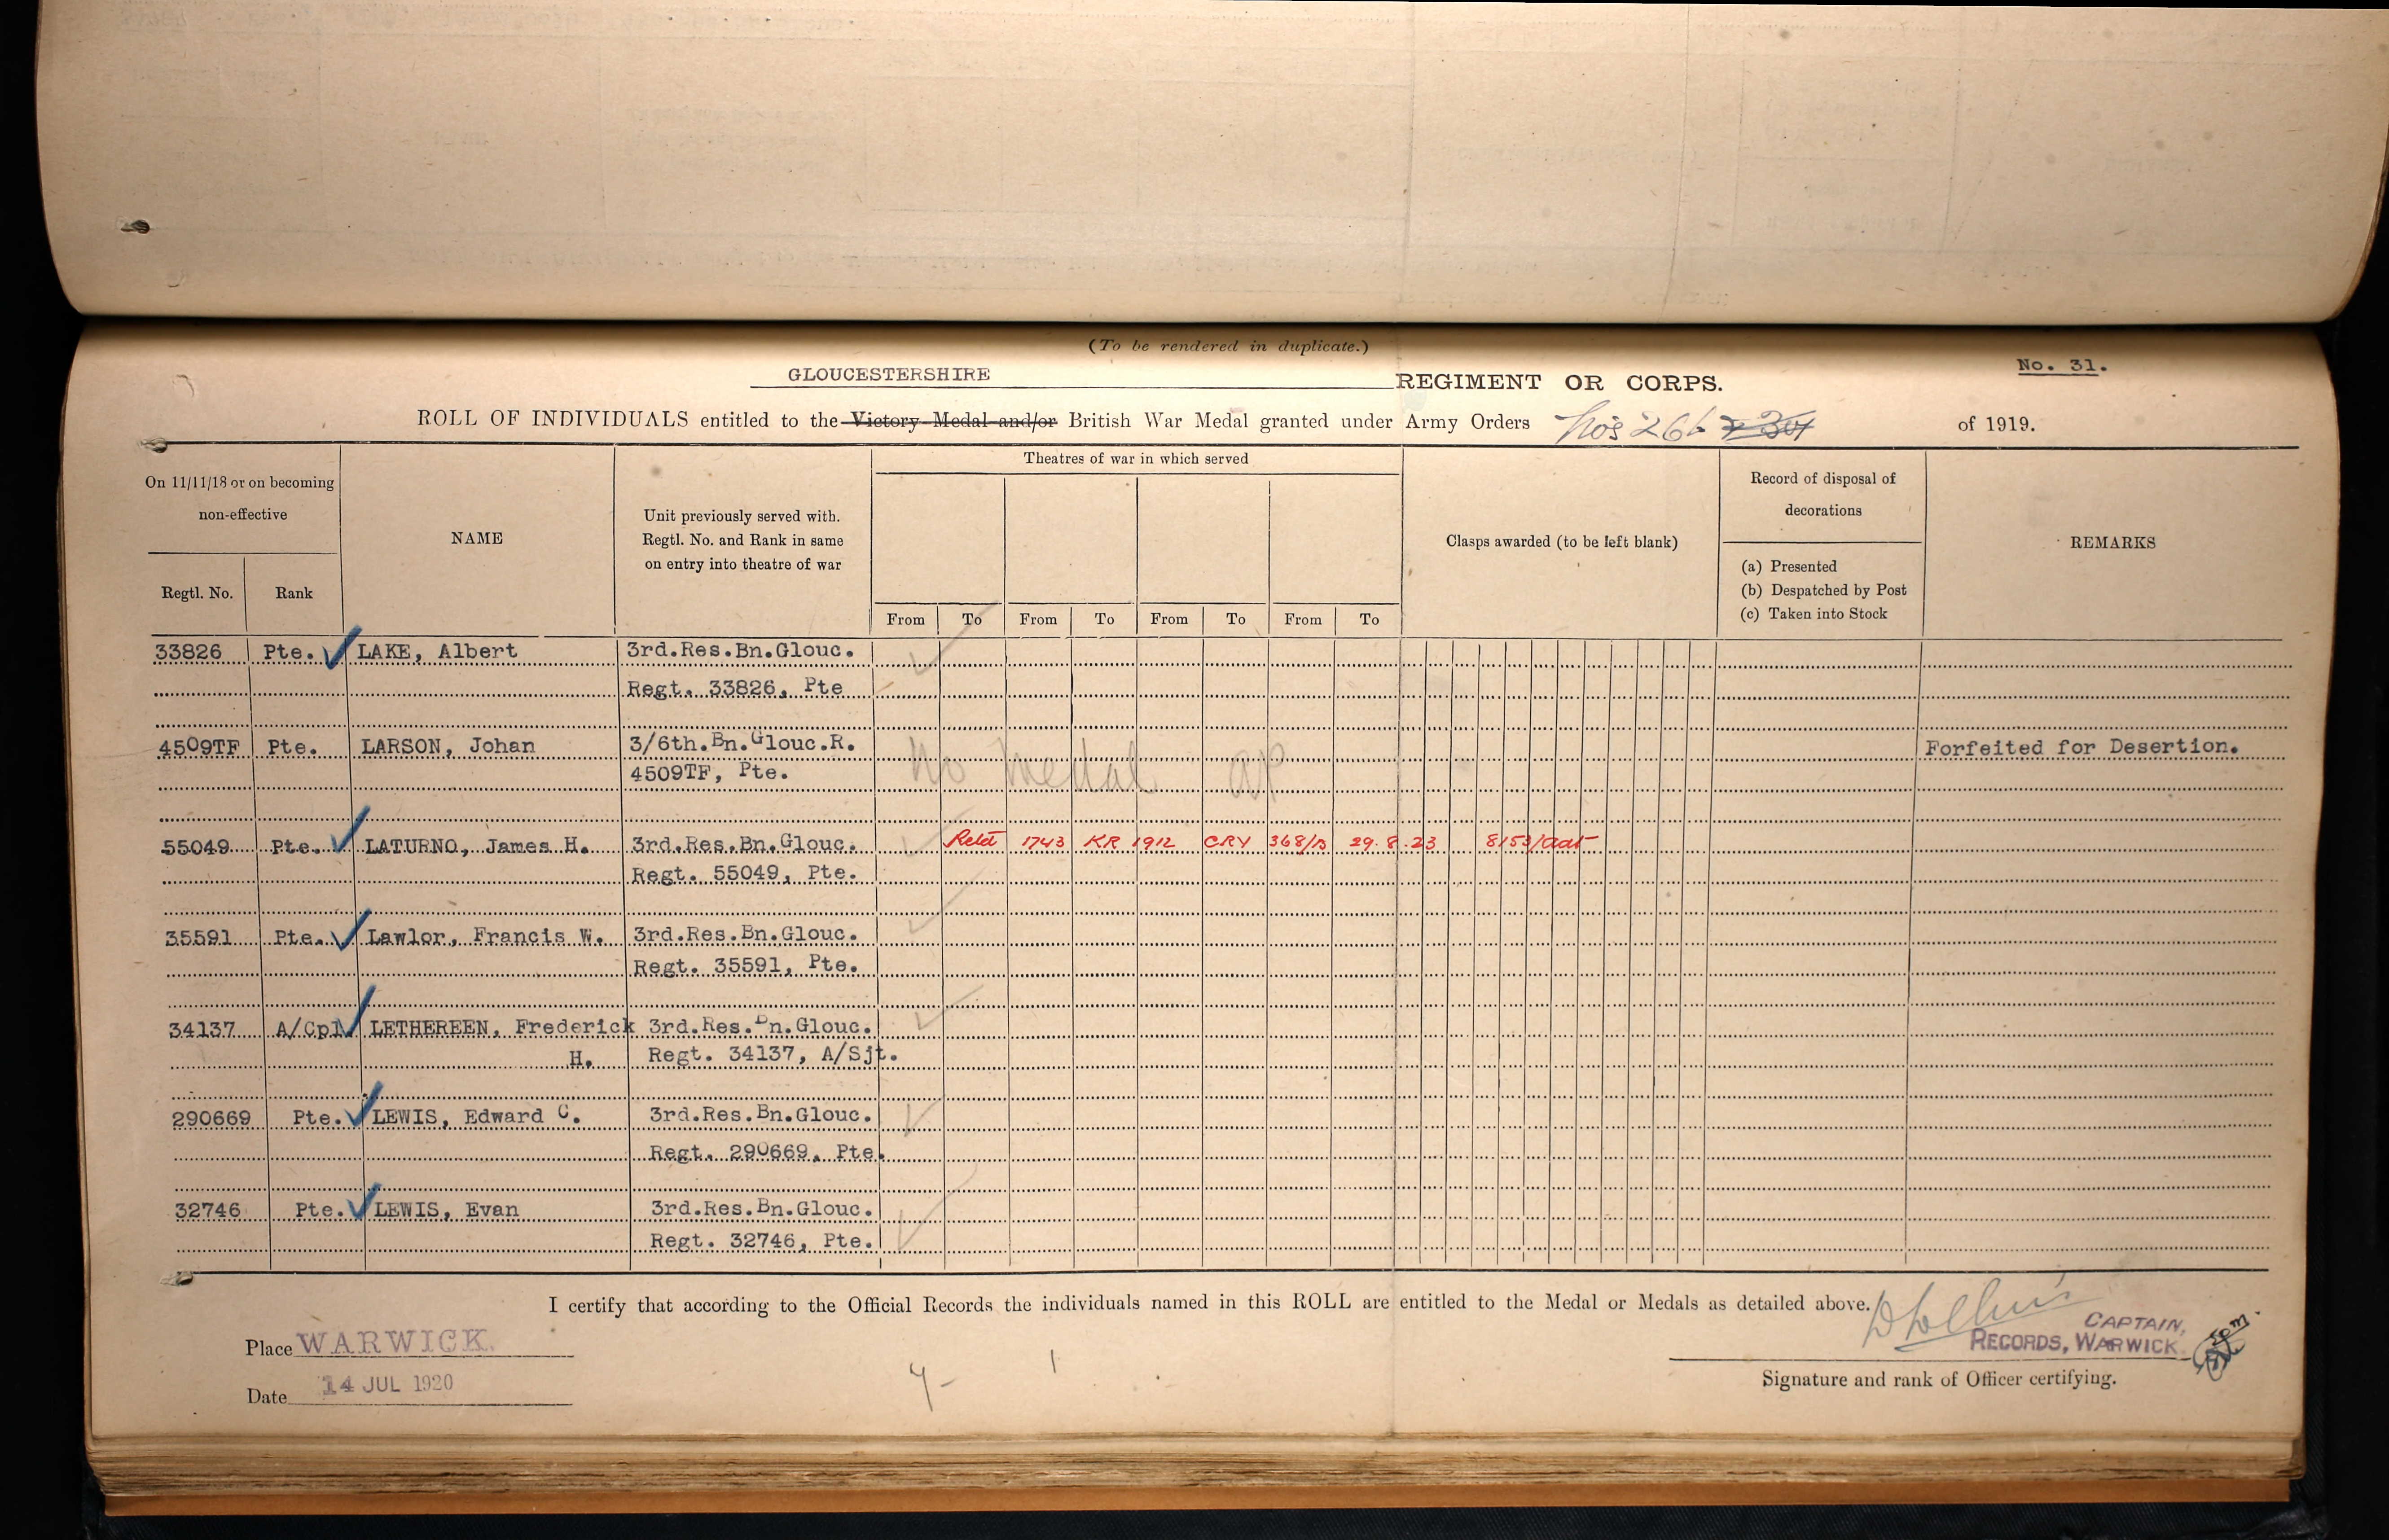 (To be rendered in duplicate.)
No. 31.
GLOUCESTERSHIRE REGIMENT OR CORPS.
ROLL OF INDIVIDUALS entitled to the Victory Medal and/or British War Medal granted under Army Orders Nos 266 of 1919.
On 11/11/18 or on becoming
non-effective
Regtl. No.
Rank
NAME
Unit previously served with.
Regtl. No. and Rank in same
on entry into theatre of war
Theatres of war in which served
From To From To From To From To
Clasps awarded (to be left blank)
Record of disposal of
decorations
(a) Presented
(b) Despatched by Post
(c) Taken into Stock
REMARKS
33826 Pte. LAKE, Albert 3rd.Res.Bn.Glouc.
Regt. 33826, Pte
4509TF Pte. LARSON, Johan 3/6th.Bn.Glouc.R. Forfeited for Desertion.
4509TF, Pte. No Medal
55049 Pte. LATURNO, James H. 3rd.Res.Bn.Glouc. Retd 1743 KR 1912 CRV 368/B 29.8.23 8153/Adt
Regt. 55049, Pte.
35591 Pte. Lawlor, Francis W. 3rd.Res.Bn.Glouc.
Regt. 35591, Pte.
34137 A/Cpl LETHEREEN, Frederick 3rd.Res.Bn.Glouc.
H. Regt. 34137, A/Sjt.
290669 Pte. LEWIS, Edward C. 3rd.Res.Bn.Glouc.
Regt. 290669, Pte.
32746 Pte. LEWIS, Evan 3rd.Res.Bn.Glouc.
Regt. 32746, Pte.
I certify that according to the Official Records the individuals named in this ROLL are entitled to the Medal or Medals as detailed above.
Place WARWICK.
CAPTAIN,
RECORDS, WARWICK.
Date 14 JUL 1920
Signature and rank of Officer certifying.